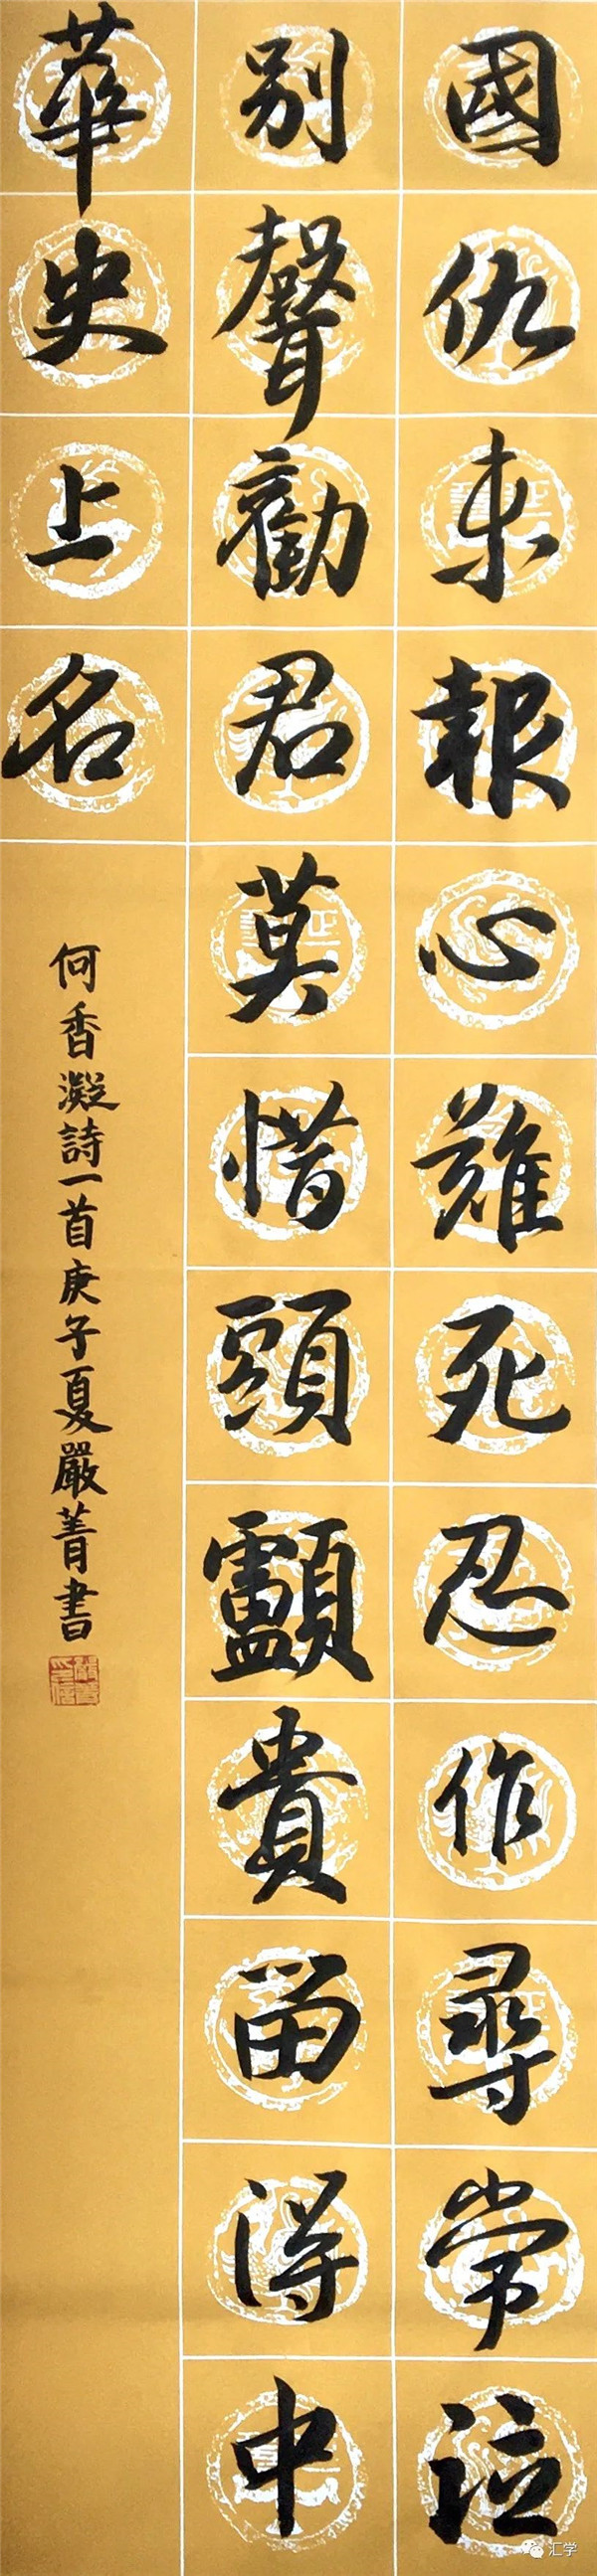 國仇未報心難死忍作尋常泣
別聲勸君莫惜頭顱貴留得中
華史上名
何香凝詩一首庚子夏嚴菁書
汇学